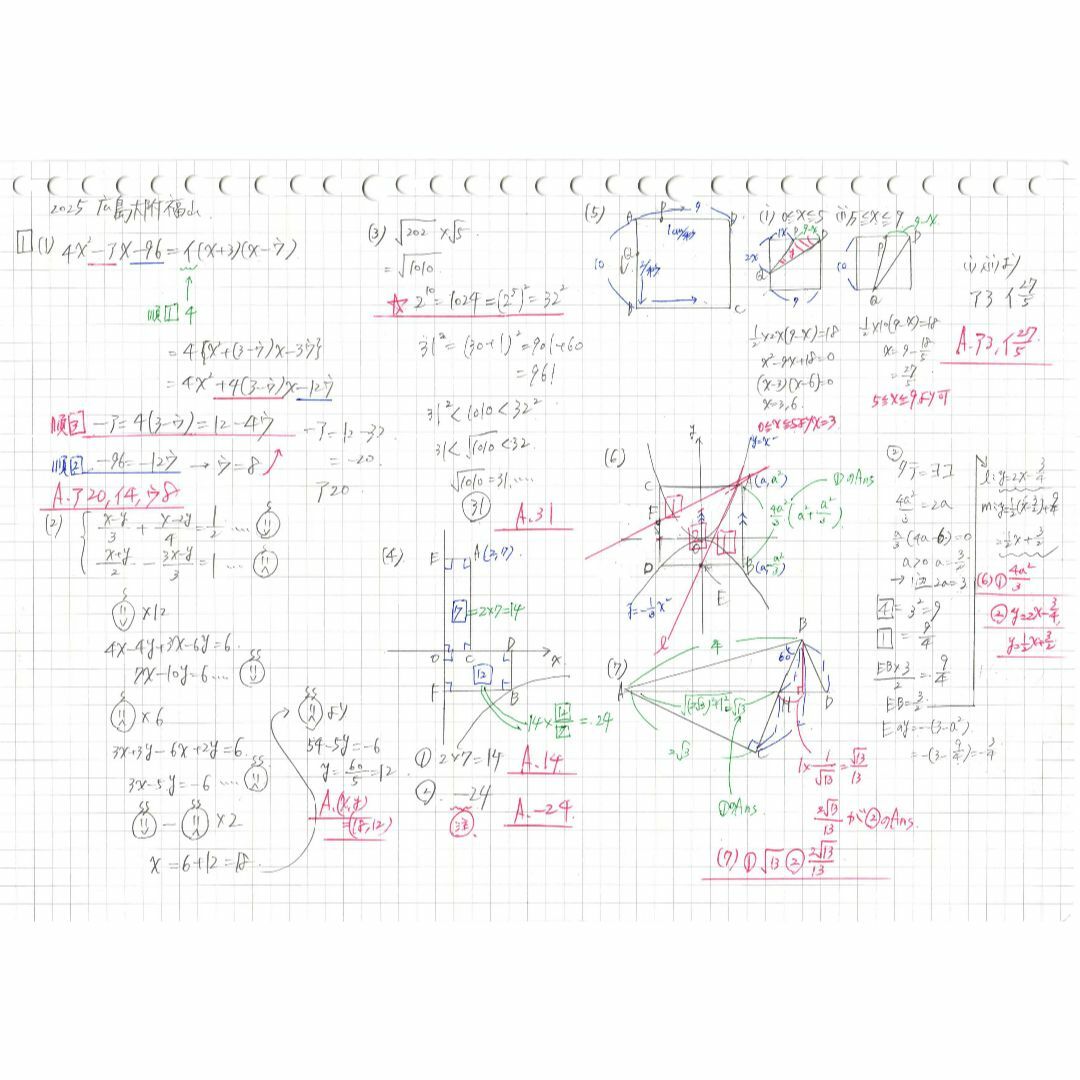 2025 広島大附福山
1 (1) 4x²-アx-96=イ(x+3)(x-ウ)
順1 4
=4{x²+(3-ウ)x-3ウ}
=4x²+4(3-ウ)x-12ウ
順3 -ア=4(3-ウ)=12-4ウ
-ア=12-32
=-20
ア20
順2 -96=-12ウ → ウ=8
A.ア20,イ4,ウ8
(2) { x-y/3 + x-2y/4 = 1/2 ....
x+y/2 - 3x-y/3 = 1 ....
×12
4x-4y+3x-6y=6.
7x-10y=6....
×6
3x+3y-6x+2y=6.
3x-5y=-6 ....
- ×2
x=6+12=18
より
54-5y=-6
y=60/5=12
A.(x,y)
=(18,12)
(3) √202×√5
=√1010
☆2¹⁰=1024=(2⁵)²=32²
31²=(30+1)²=901+60
=961
31²<1010<32²
31<√1010<32
√1010=31....
31
A.31
(4)
E A(2,7)
7=2×7=14
O C D x
12
F B
14×12/7=24
① 2×7=14 A.14
② -24 A.-24
注
(5) A P → 9 D
1cm/秒
10 Q 2/秒
B C
(i) 0≤x≤5 (ii) 5≤x≤9
1/2×2x(9-x)=18
x²-9x+18=0
(x-3)(x-6)=0
x=3,6.
0≤x≤5よりx=3
1/2×10(9-x)=18
x=9-18/5
=27/5
5≤x≤9より可
i),ii)より
ア3 イ27/5
A.ア3,イ27/5
(6)
y
y=x²
C A(a,a²)
①のAns
4a²/3 (a²+a²/3)
D B(a,-a²/3)
E
y=-1/3x²
l
②
4a²/3=2a
a/3(4a-6)=0
a>0 a=3/2
→ 2a=3
4=3²=9
1=9/4
EB×3/2=9/4
EB=3/2
Eのy=-(3-a²)
=-(3-9/4)=-3/4
l:y=2x-3/4
m:y=1/2(x-3/2)+9/4
=1/2x+3/2
(6)①4a²/3
②y=2x-3/4,
y=1/2x+3/2
(7)
A B C D H
4
60°
√(2√3)²+1²=√13
2√3
①のAns
1×1/√13=√13/13
2√13/13が②のAns.
(7)①√13②2√13/13